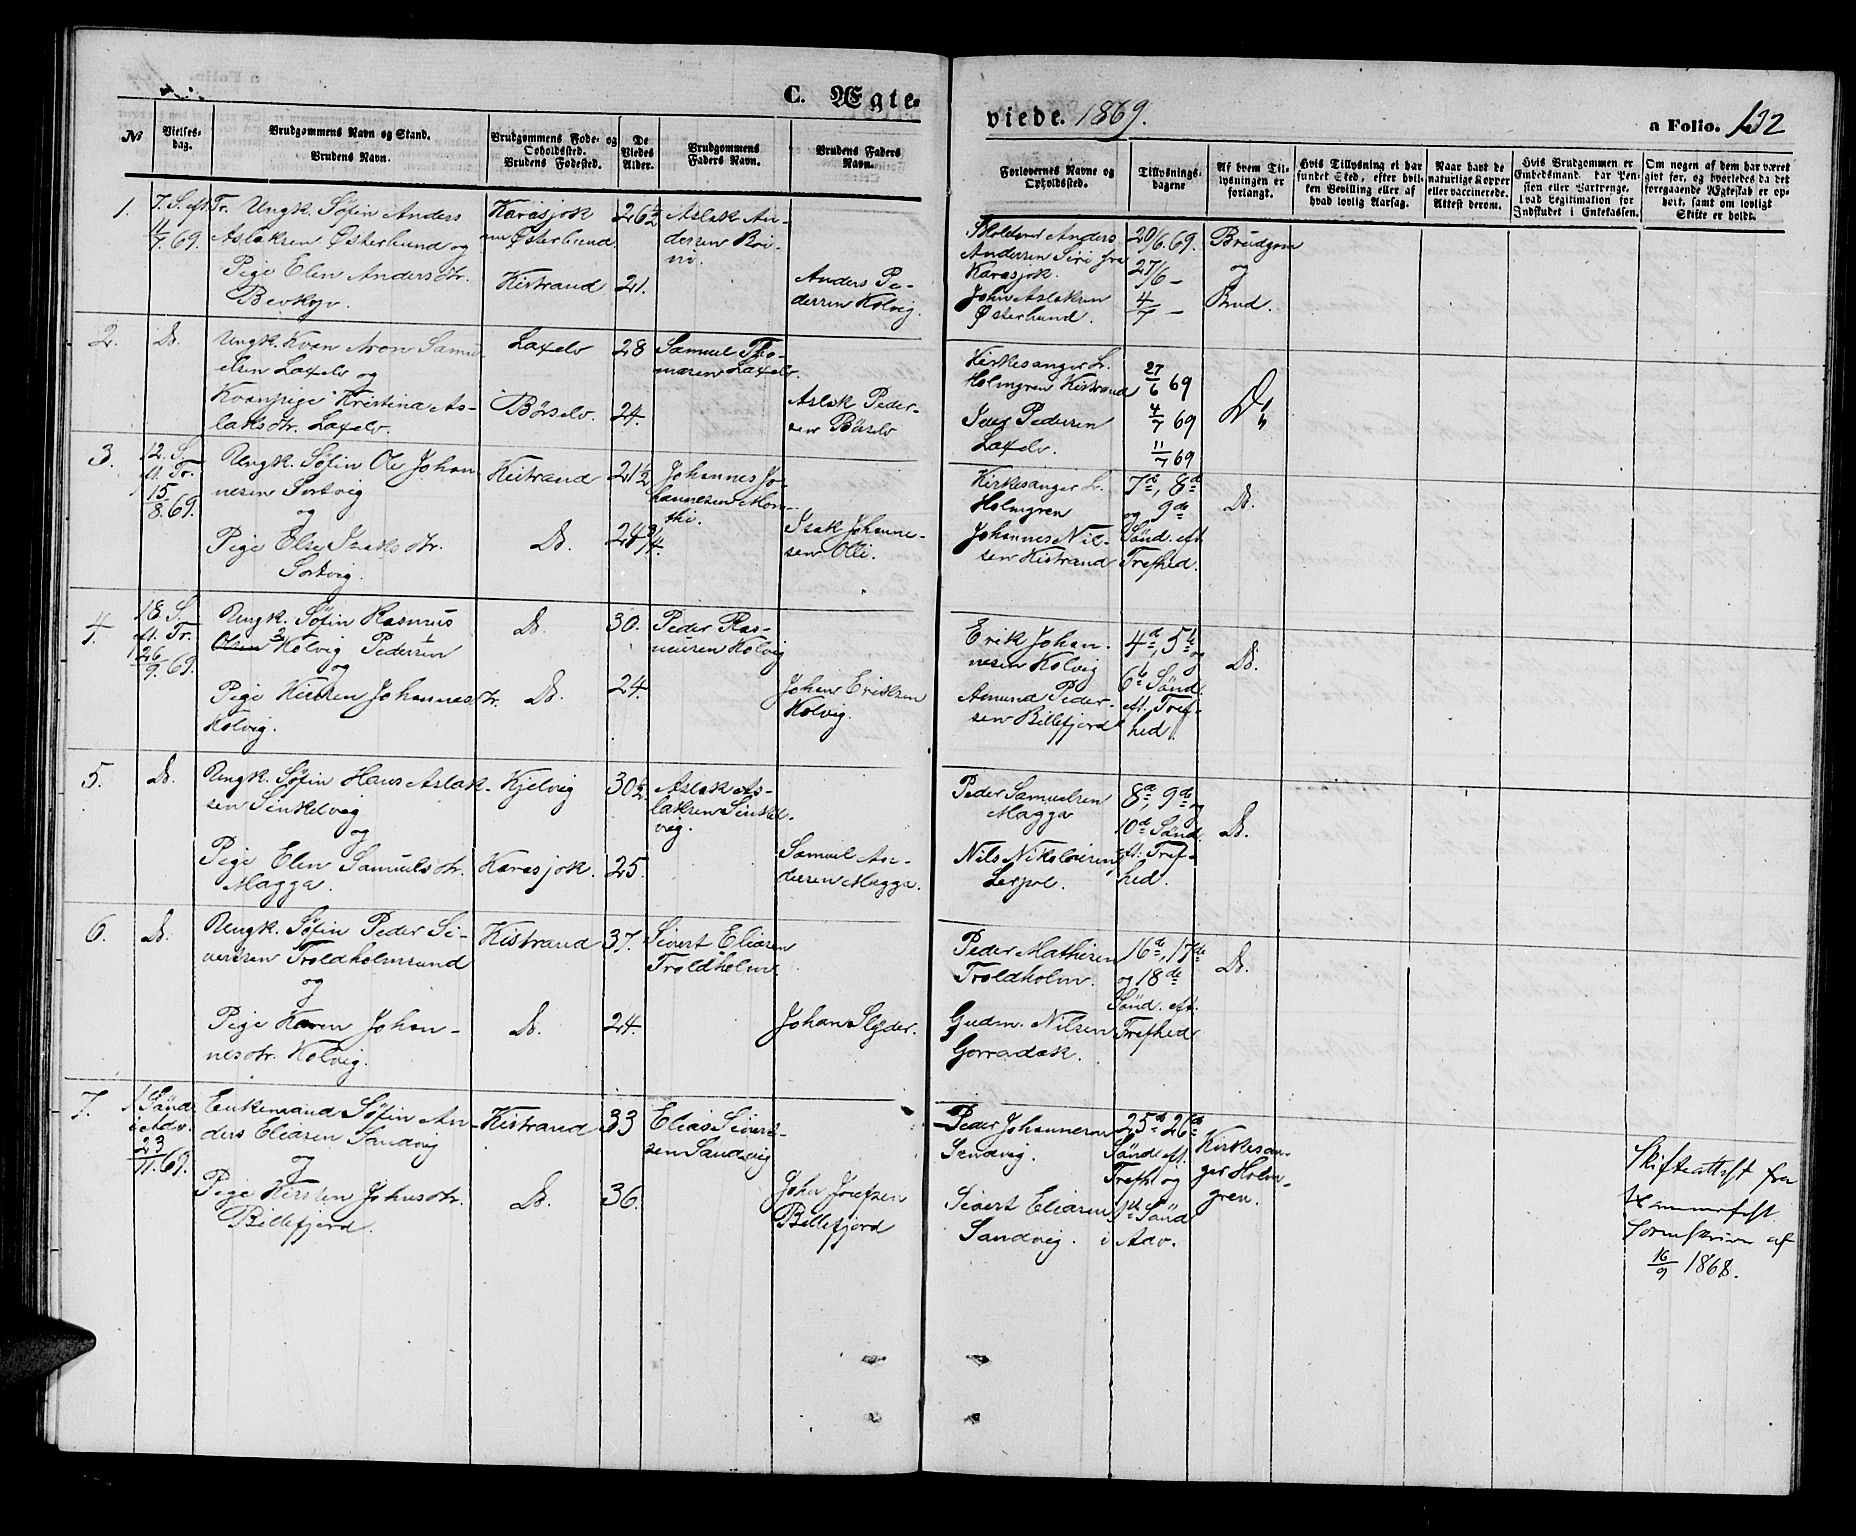 C. Ægte-
viede. 1869.
a Folio. 132
No
Vielses-
dag.
Brudgommens Navn og Stand.
Brudens Navn.
Brudgommens Føde- og
Opholdssted.
Brudens Fødested.
De
Viedes
Alder.
Brudgommens
Faders Navn.
Brudens Faders
Navn.
Forlovernes Navne og
Opholdssted.
Tillysnings-
dagene
Af hvem Til-
lysningen er
forlangt.
Hvis Tillysning ei har
fundet Sted, efter hvil-
ken Bevilling eller af
hvad lovlig Aarsag.
Naar havt de
naturlige Kopper
eller vaccinerede.
Attest derom.
Hvis Brudgommen er
Embedsmand, har Pen-
sion eller Vartpenge,
hvad Legitimation for
Indskudet i Enkekassen.
Om nogen af dem har været
givt før, og hvorledes da det
foregaaende Ægteskab er op-
hørt, samt om lovligt
Skifte er holdt.
1.
7. S. eft. Tr.
11/7. 69.
Ungk. Søfin Anders
Aslaksen Østerbund og
Pige Elen Andersdtr.
Karasjok
Østerbund
Kistrand
26½
21.
Aslak An-
dersen
Anders Pe-
dersen Kolvig.
Anders
Andersen Siri fra
Karasjok.
John Aslaksen
Østerbund.
20/6. 69.
27/6 -
4/7 -
Brudgom
og
Brud.
2.
Do.
Ungk. Kvæn Aron Samu-
elsen Laxelv og
Kvænpige Kristina As-
laksdtr. Laxelv.
Laxelv
Børselv.
28
24.
Samuel Tho-
masen Laxelv.
Aslak Peder-
sen Børselv
Kirkesanger L.
Holmgren Kistrand
Pedersen
Laxelv.
27/6 69
4/7 69
11/7 69
Do.
3.
12. S.
ft. Tr.
15/8. 69.
Ungk. Søfin Ole Johan-
nesen Sortvig
og
Pige Else Isaksdtr.
Sortvig.
Kistrand
Do.
21½
24¾.
Johannes Jo-
hannesen
Isak Johanne-
sen Olli.
Kirkesanger L.
Holmgren
Johannes Nil-
sen Kistrand
7de, 8de
og 9de
Sönd. eft.
Trefhed.
Do.
4.
18. S.
ft. Tr.
26/9. 69.
Ungk. Søfin Rasmus
Kolvig Pedersen
og
Pige Kirsten Johannesdtr.
Kolvig.
Do.
Do.
30.
24.
Peder Ras-
mussen Kolvig
Johan Eriksen
Kolvig.
Erik Johan-
nesen Kolvig
Amund Peder-
sen Billefjord
4de, 5te
og
6te Sönd.
ft. Tref-
hed.
Do.
5.
Do.
Ungk. Søfin Hans Aslak-
sen Sinkelvig
og
Pige Elen Samuelsdtr.
Magga.
Kjelvig
Karasjok.
30½
25.
Aslak As-
laksen Sinkel-
vig.
Samuel An-
dersen Magga.
Peder Samuelsen
Magga
Nils Nikolaisen
8de, 9de
og
10de Sönd.
eft. Tref-
hed.
Do.
6.
Do.
Ungk. Søfin Peder Si-
vertsen Troldholmsund
og
Pige Karen Johan-
nesdtr. Kolvig.
Kistrand
Do.
37.
24.
Sivert Eliasen
Troldholm
Johan Slyder.
Peder Mathisen
Troldholm.
Gudm. Nilsen
Gorradak.
16de, 17de
og 18de
Sönd. eft.
Trefhed
Do.
7.
1 Sönd.
i Adv.
69.
Enkemand Søfin An-
ders Eliasen Sandvig
og
Pige Kirsten Johnsdtr.
Billefjord.
Kistrand
Do.
33
36.
Elias Sivert-
sen Sandvig
John Josefsen
Billefjord
Peder Johannesen
Sandvig.
Sivert Eliasen
Sandvig.
25de 26de
Sönd. eft.
Trefh. og
1st Sönd
i Adv.
Kirkesan-
ger Holm-
gren.
Skifteattest fra
Hammerfest
Sorenskriver af
16/9 1868.